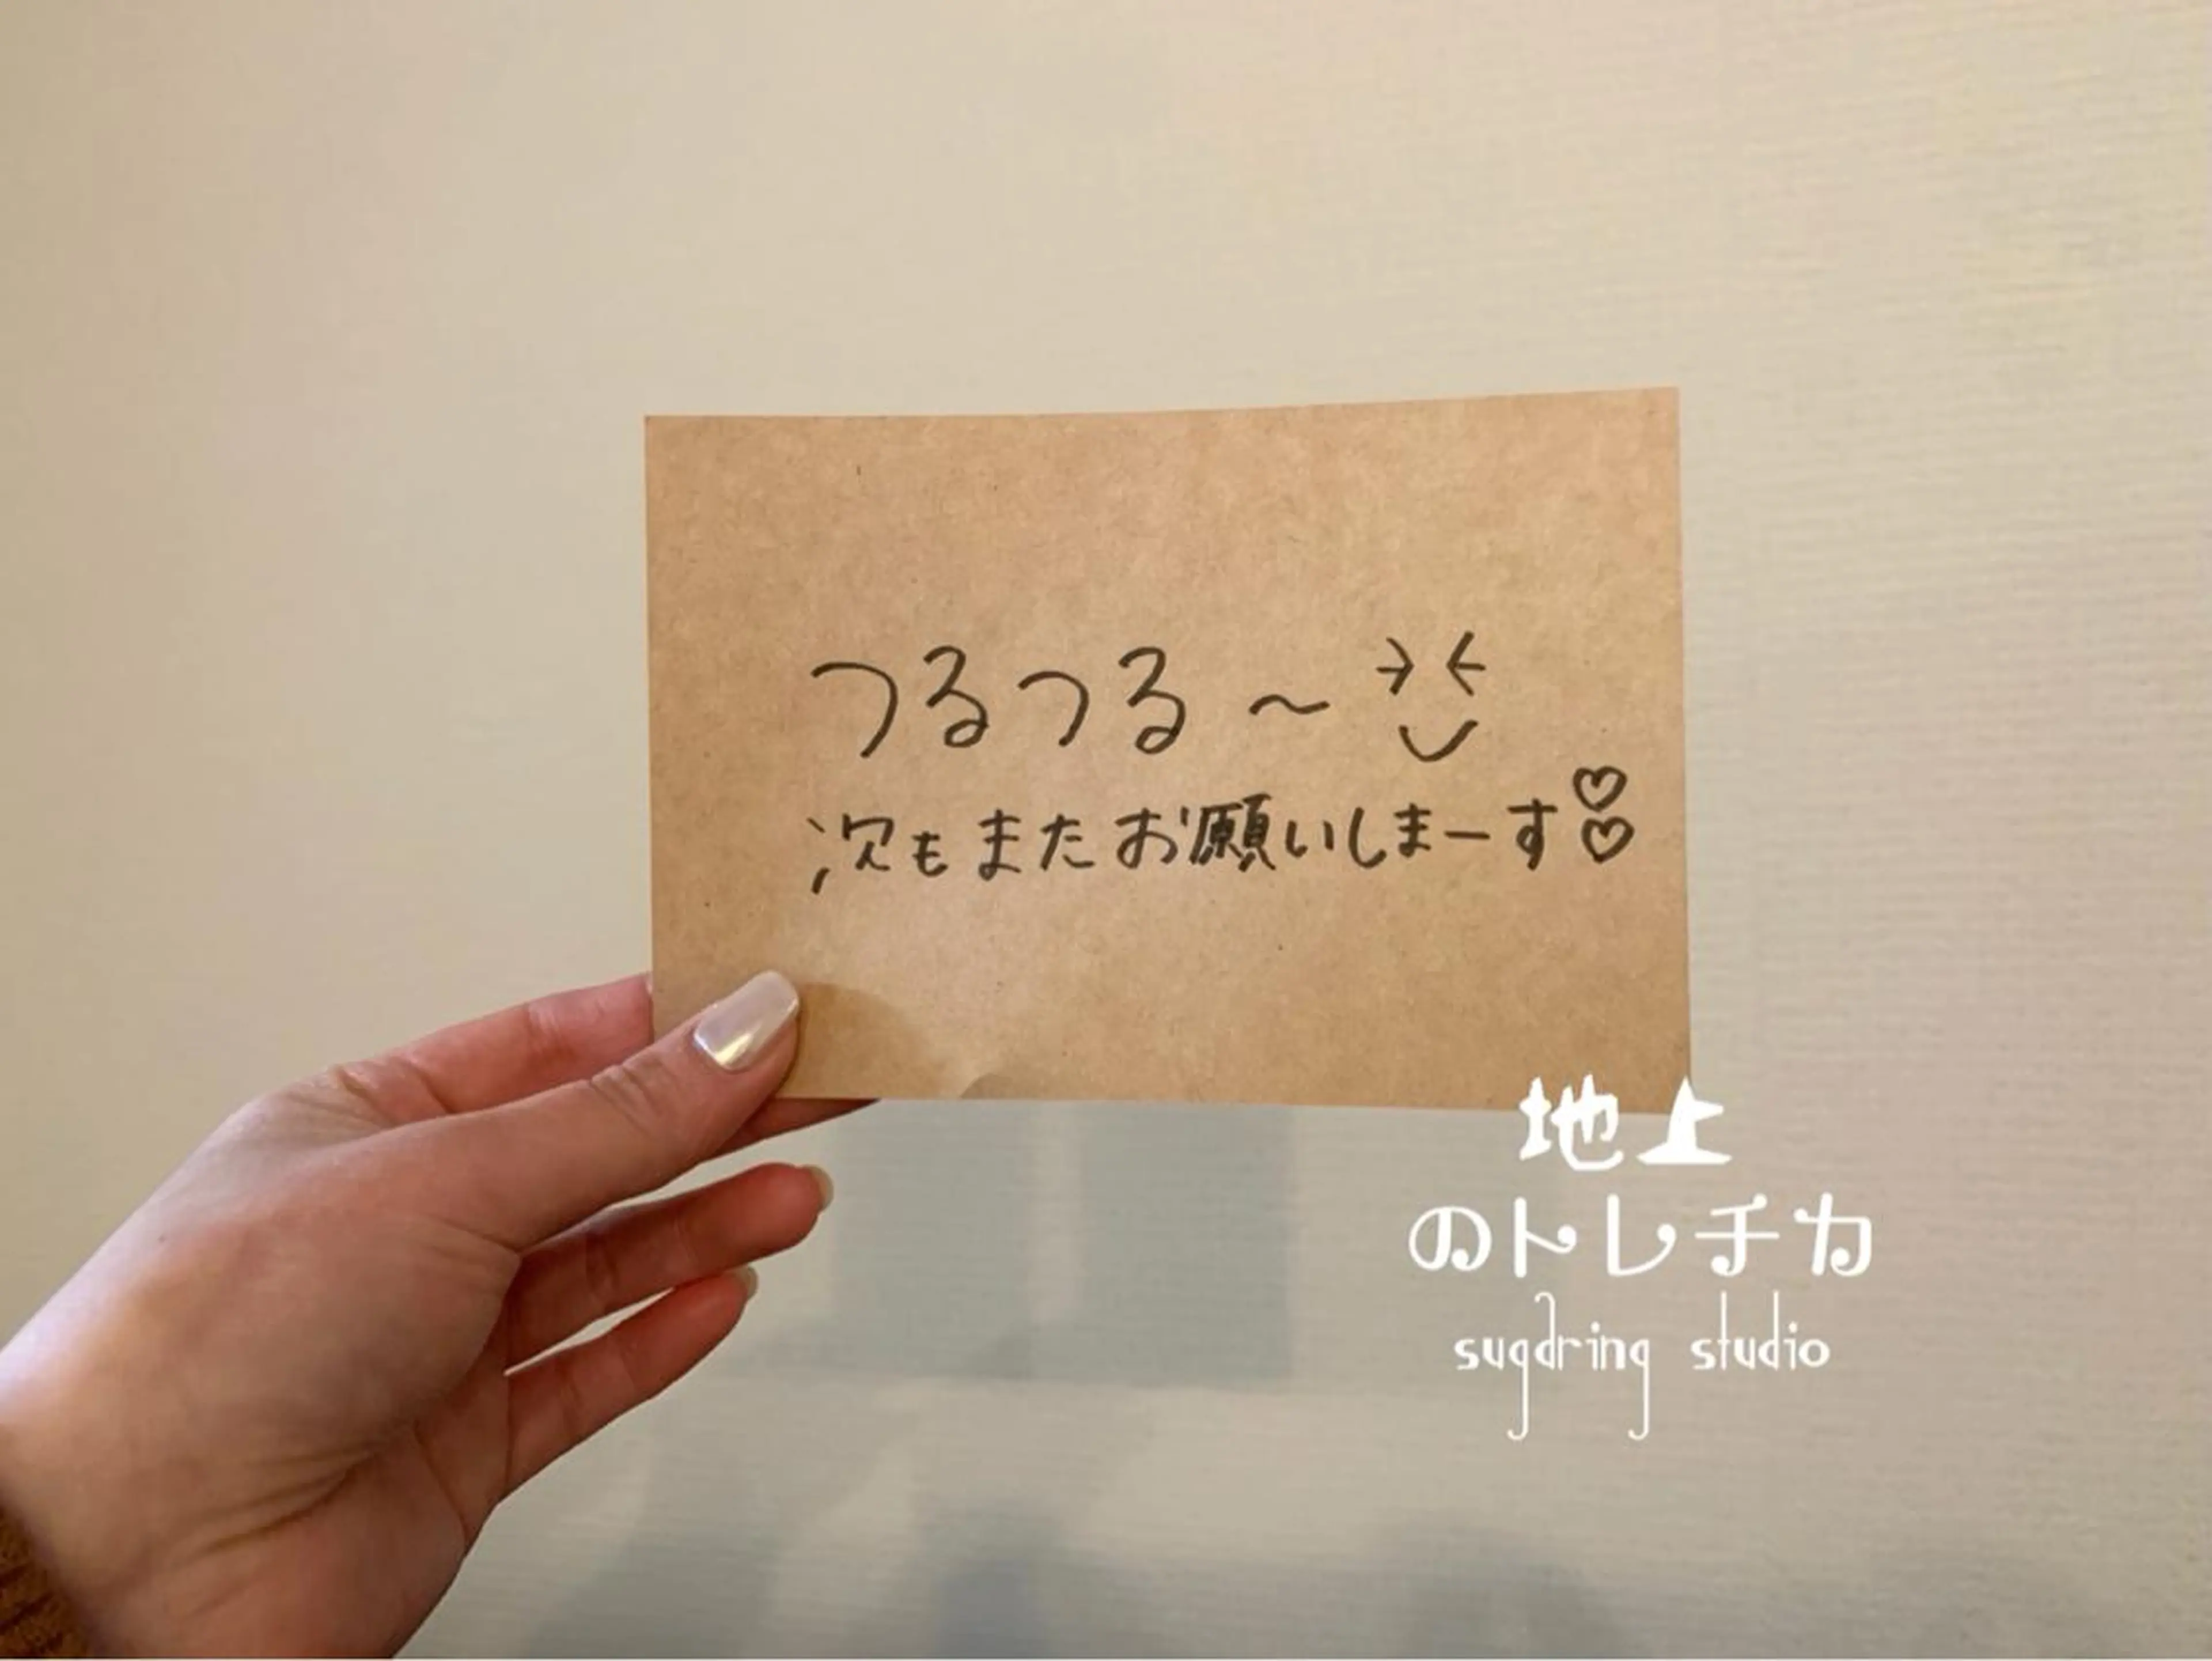 つるつる〜
次もまたお願いしまーす♡♡
地上
のトレチカ
sugaring studio